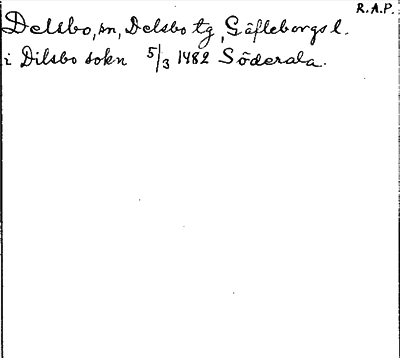 R.A.P.
Delsbo, sn, Delsbo tg, Gäfleborgs l.
i Dilsbo sokn 5/3 1482 Söderala.